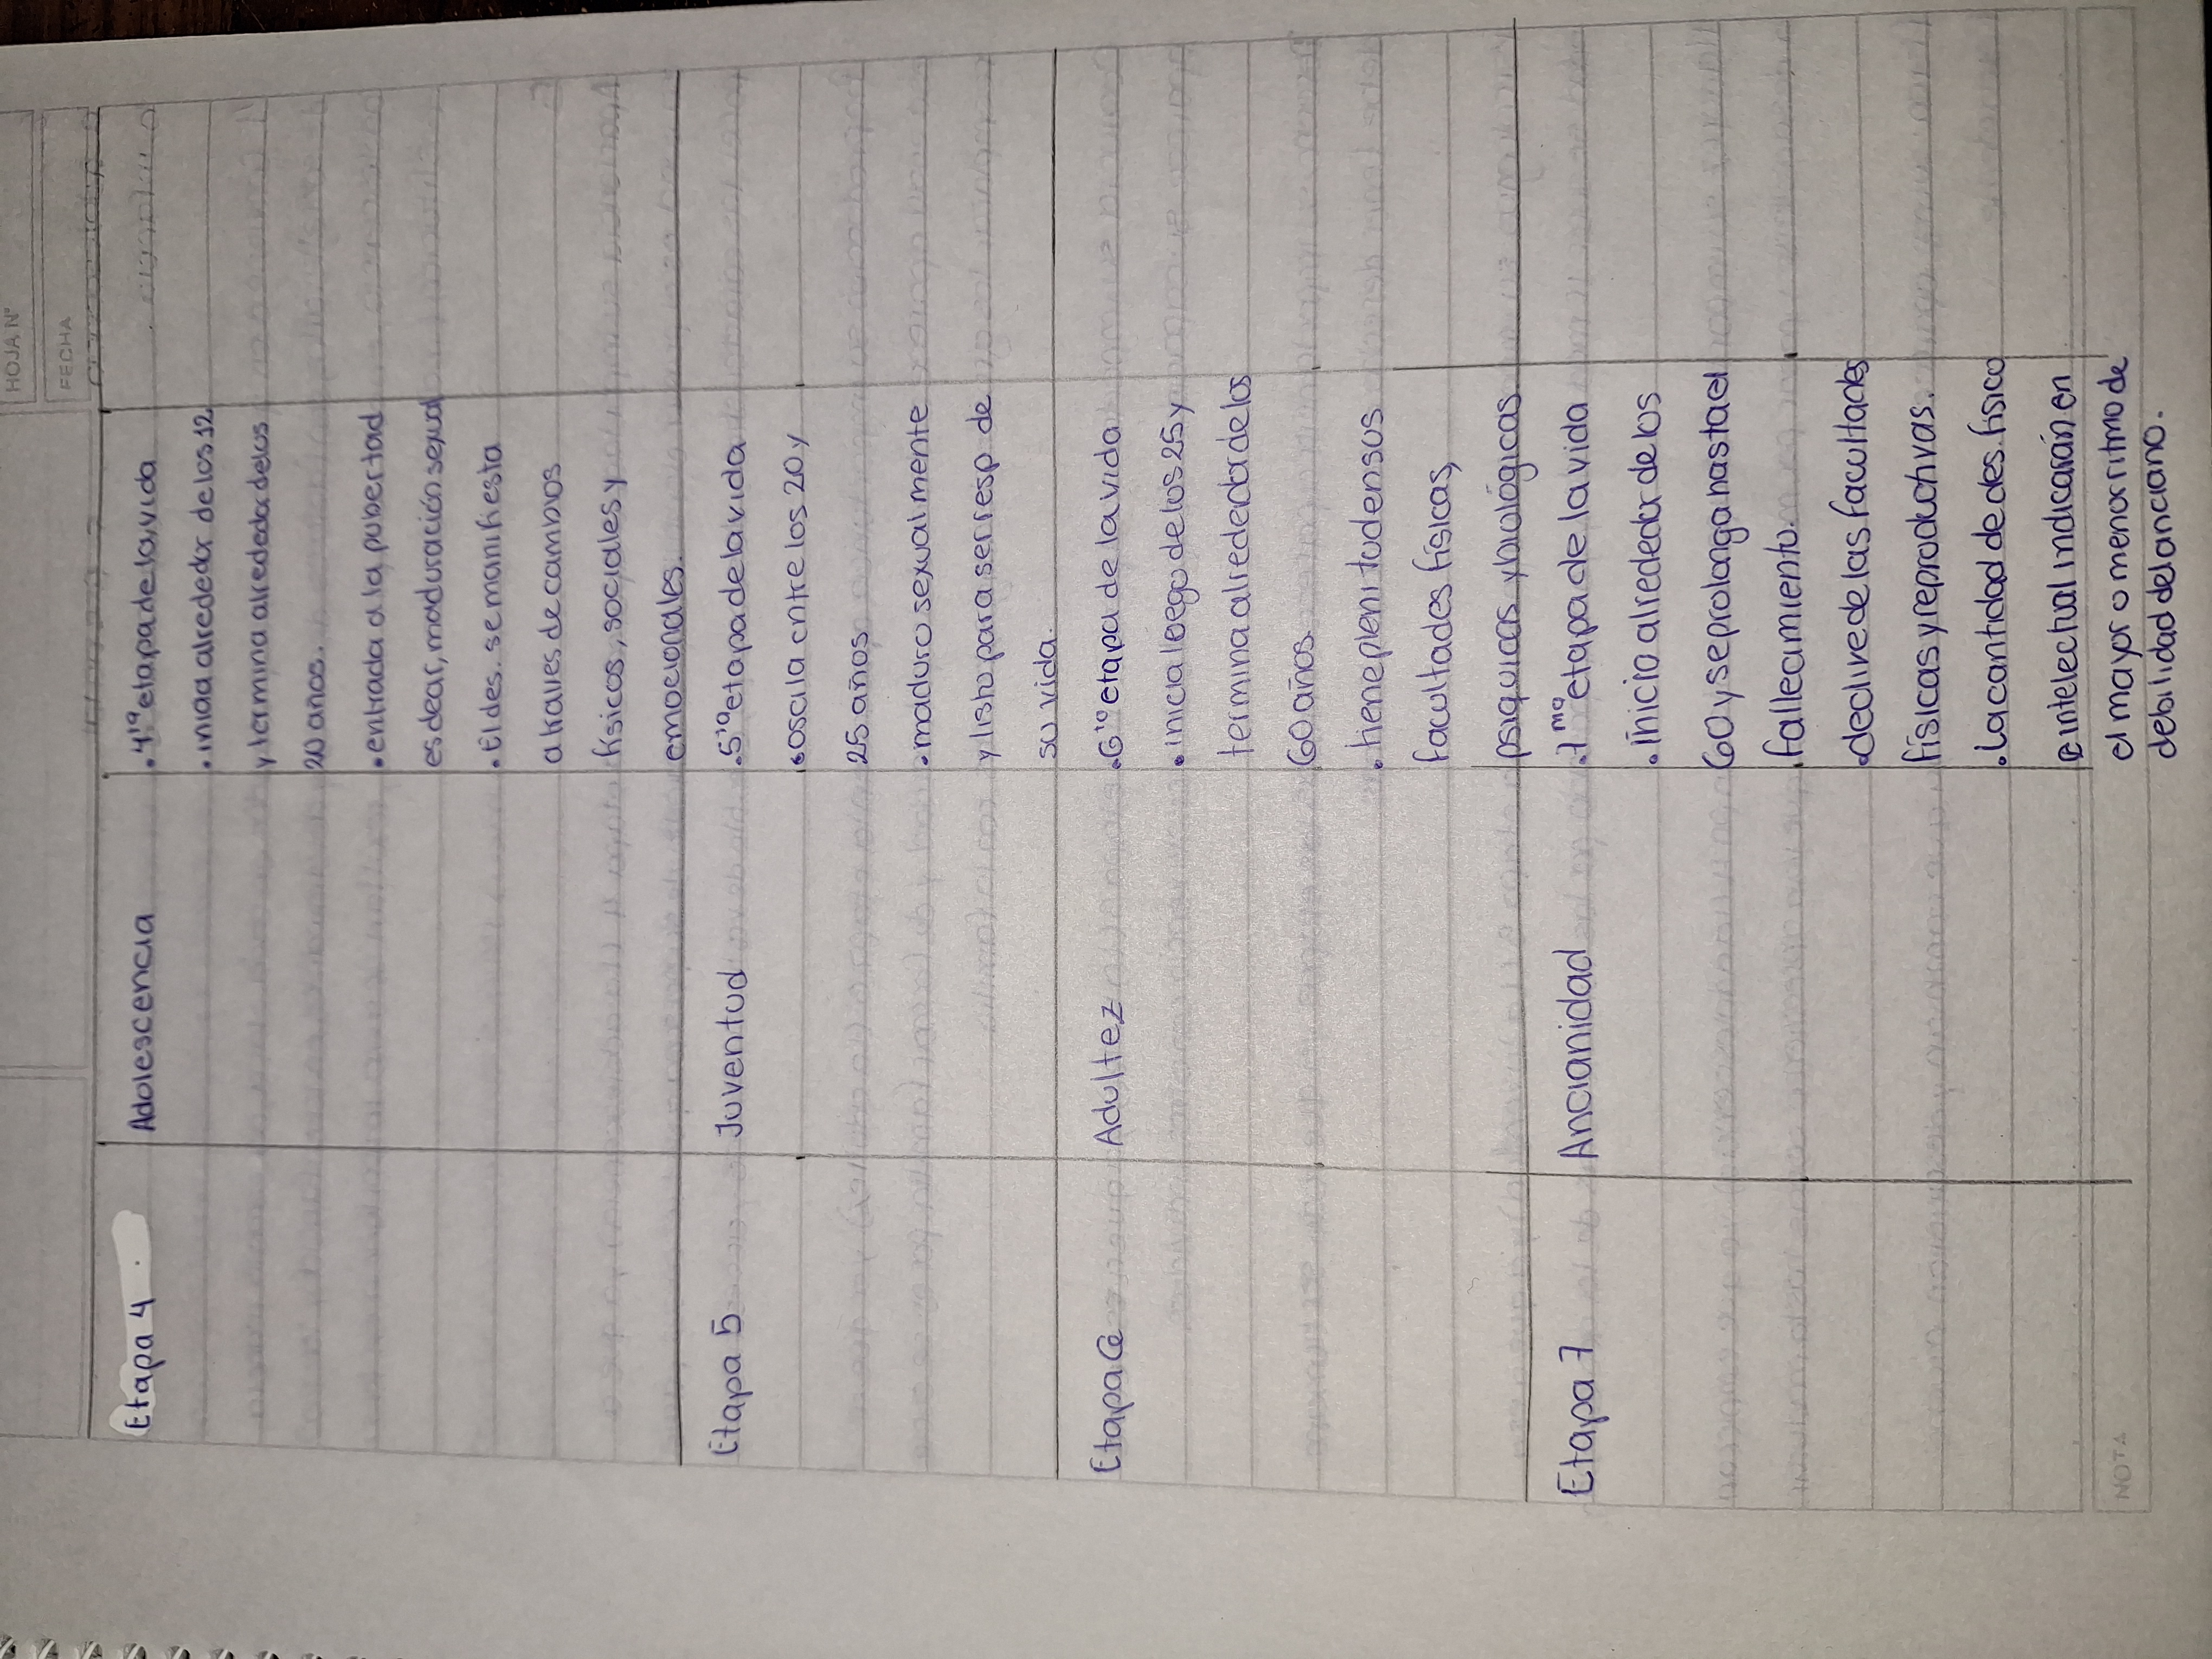 HOJA N°
FECHA
Etapa 4
Adolescencia
. 4ta etapa de la vida
. inicia alrededor de los 12
y termina alrededor de los
20 anos.
. entrada a la pubertad
es decir, maduración sexual
. El des. se manifiesta
a traves de cambios
físicos, sociales y
emocionales.
Etapa 5
Juventud
. 5ta etapa de la vida
. oscila entre los 20 y
25 años
. maduro sexualmente
y listo para ser resp de
su vida.
Etapa 6
Adultez
. 6ta etapa de la vida
. inicia luego de los 25 y
termina alrededor de los
60 años.
. tiene plenitud en sus
facultades físicas,
psíquicas y biológicas
Etapa 7
Ancianidad
. 7ma etapa de la vida
. inicio alrededor de los
60 y se prolonga hasta el
fallecimiento.
. declive de las facultades
físicas y reproductivas.
. La cantidad de des. físico
e intelectual indicarán en
el mayor o menor ritmo de
debilidad del anciano.
NOTA